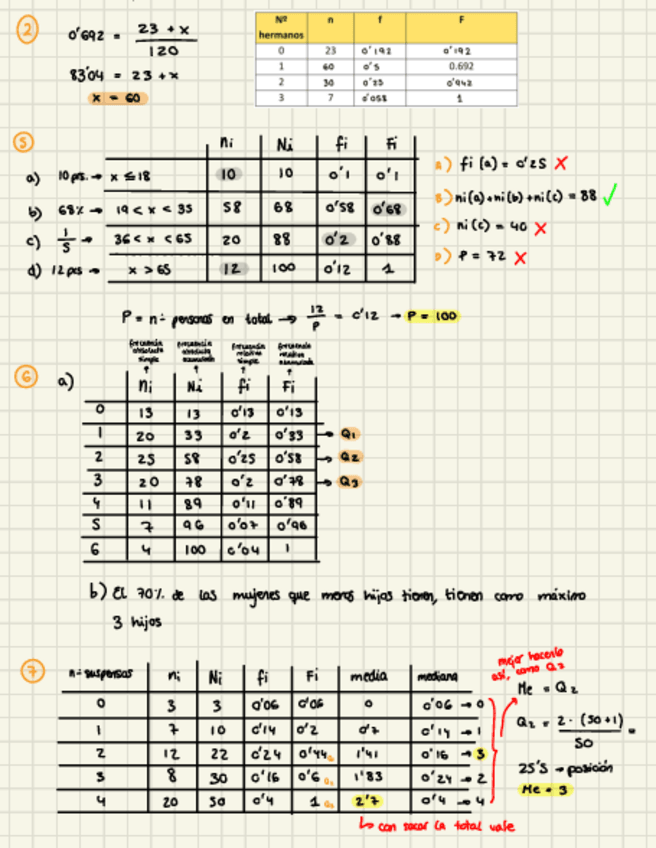 2
0'692 = 23 + x / 120
83'04 = 23 + x
x = 60
Nº hermanos n f F
0 23 0'192 0'192
1 60 0'5 0.692
2 30 0'25 0'942
3 7 0'058 1
5
ni Ni fi Fi
a) 10 prs. → x ≤ 18 10 10 0'1 0'1
b) 68% → 19 < x < 35 58 68 0'58 0'68
c) 1/5 → 36 < x < 65 20 88 0'2 0'88
d) 12 prs → x > 65 12 100 0'12 1
A) fi (a) = 0'25 X
B) ni(a)+ni(b)+ni(c) = 88 ✓
C) ni (c) = 40 X
D) P = 72 X
P = nº personas en total → 12/P = 0'12 → P = 100
frecuencia absoluta simple
frecuencia absoluta acumulada
frecuencia relativa simple
frecuencia relativa acumulada
6 a)
ni Ni fi Fi
0 13 13 0'13 0'13
1 20 33 0'2 0'33 → Q1
2 25 58 0'25 0'58 → Q2
3 20 78 0'2 0'78 → Q3
4 11 89 0'11 0'89
5 7 96 0'07 0'96
6 4 100 0'04 1
b) El 70% de las mujeres que menos hijos tienen, tienen como máximo
3 hijos
7
nº suspensos ni Ni fi Fi media mediana
0 3 3 0'06 0'06 0 0'06 → 0
1 7 10 0'14 0'2 0'7 0'14 → 1
2 12 22 0'24 0'44 1'41 0'16 → 3
3 8 30 0'16 0'6 1'83 0'24 → 2
4 20 50 0'4 1 2'7 0'4 → 4
mejor hacerlo
así, como Q2
Me = Q2
Q2 = 2 · (50+1) / 50 =
25'5 → posición
Me = 3
↳ con sacar la total vale